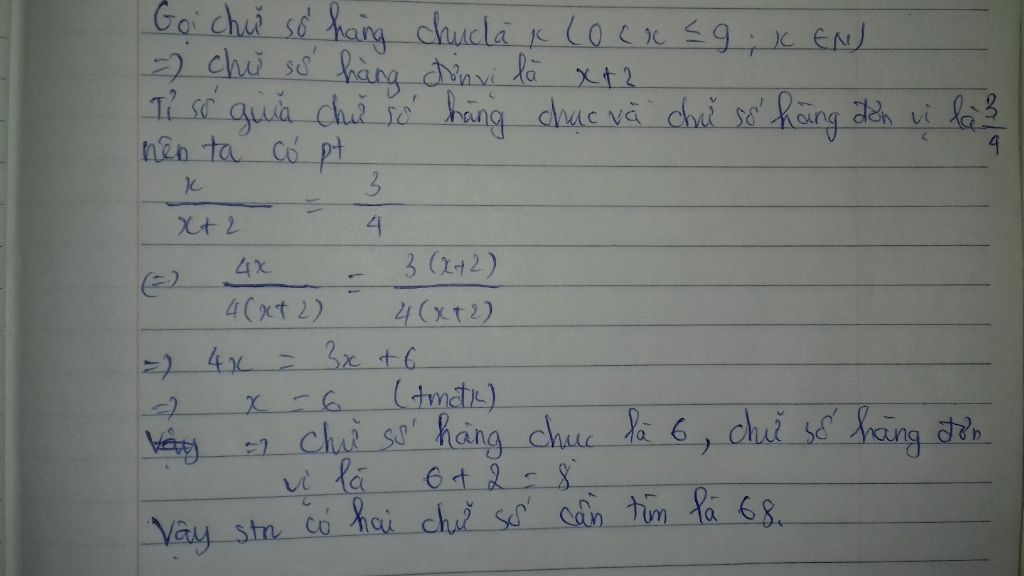 Gọi chữ số hàng chục là x (0 < x ≤ 9 ; x ∈ N)
=> chữ số hàng đơn vị là x+2
Tỉ số giữa chữ số hàng chục và chữ số hàng đơn vị là 3/4
nên ta có pt
x/(x+2) = 3/4
(=) 4x/4(x+2) = 3(x+2)/4(x+2)
=) 4x = 3x + 6
=) x = 6 (tmđk)
=) chữ số hàng chục là 6, chữ số hàng đơn
vị là 6 + 2 = 8
Vậy stn có hai chữ số cần tìm là 68.